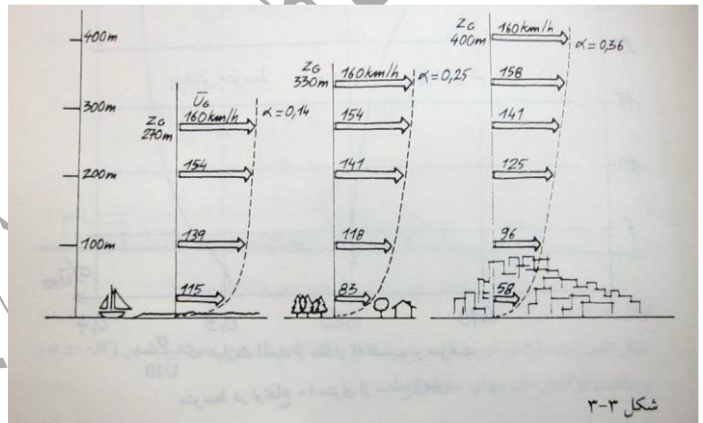 400m
300m
200m
100m
ZG
270m
ŪG
160km/h
α=0,14
154
139
115
ZG
330m
160km/h
α=0,25
154
141
118
83
ZG
400m
160km/h
α=0,36
158
141
125
96
58
شکل ۳-۳